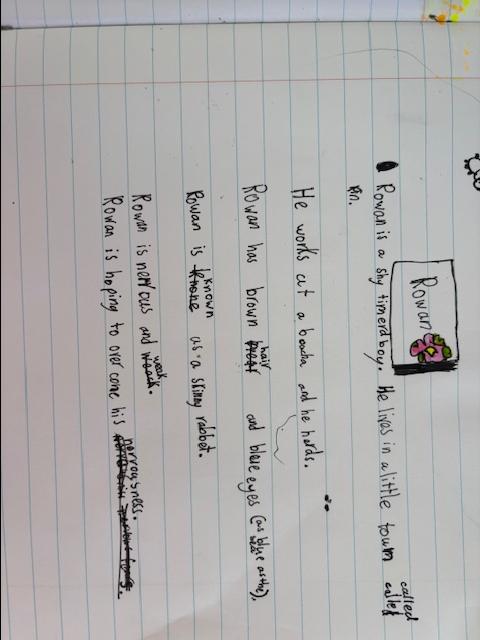 Rowan
Rowan is a shy timerd boy. He lives in a little town called
He works at a and he herds.
Rowan has brown hair and blue eyes (as blue as the).
Rowan is known as a skinny rabbet.
Rowan is nervous and weak.
Rowan is hoping to over come his nervousness.